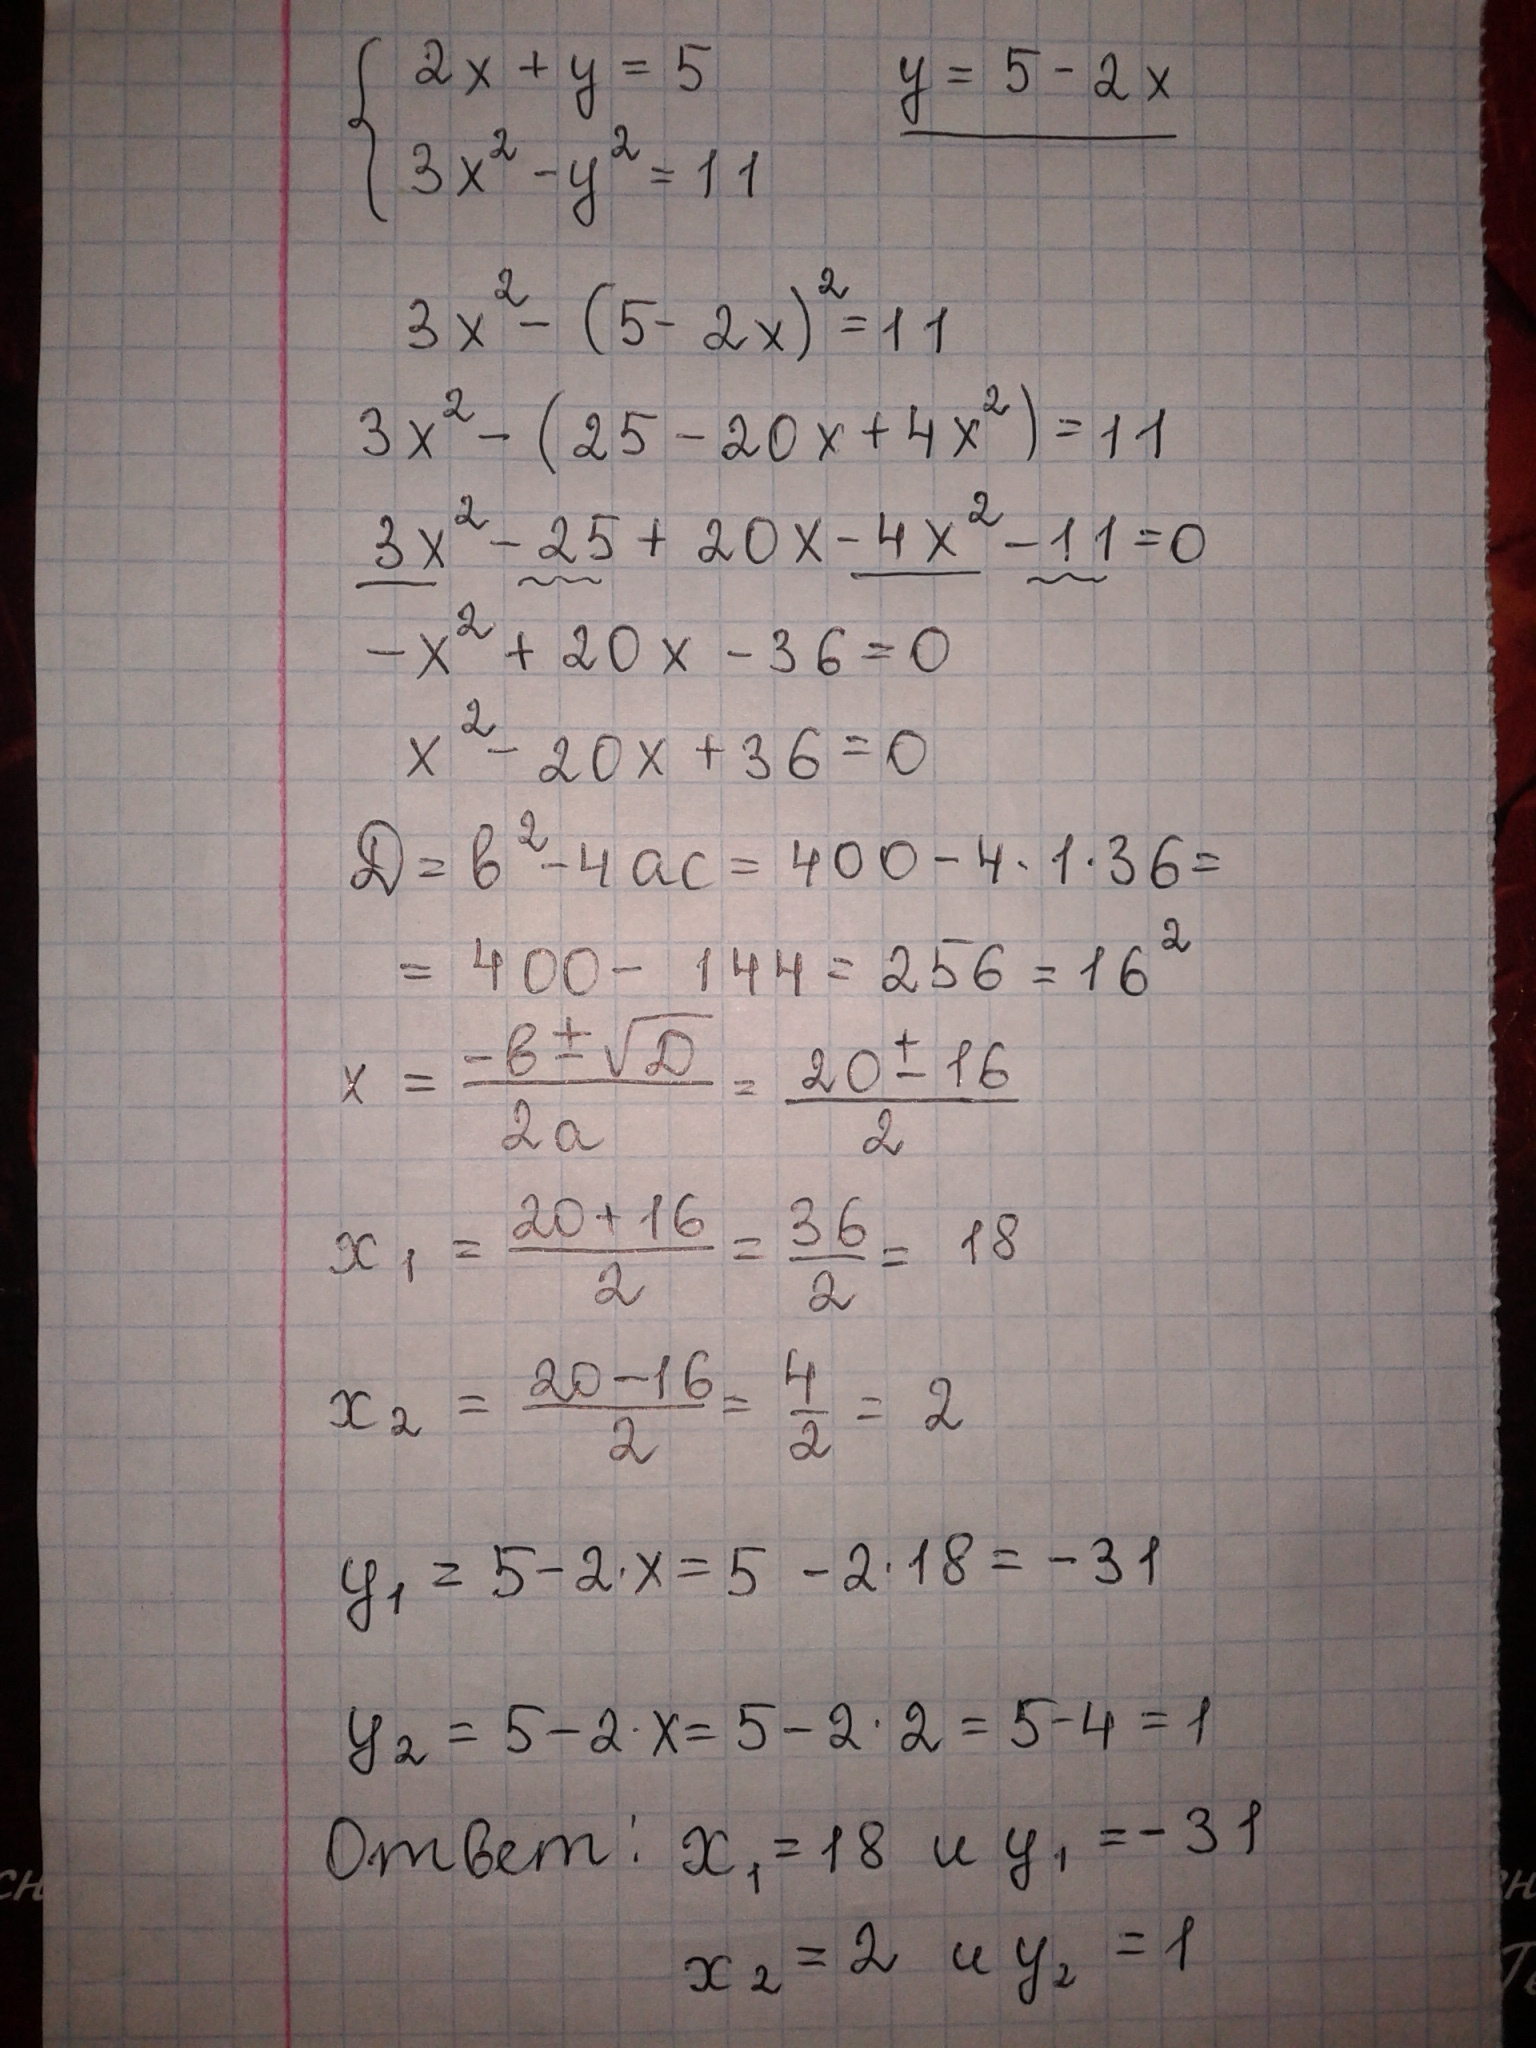 { 2x + y = 5    y = 5 - 2x
3x² - y² = 11
3x² - (5 - 2x)² = 11
3x² - (25 - 20x + 4x²) = 11
3x² - 25 + 20x - 4x² - 11 = 0
-x² + 20x - 36 = 0
x² - 20x + 36 = 0
D = в² - 4ac = 400 - 4·1·36 =
= 400 - 144 = 256 = 16²
x = (-в ± √D)/(2a) = (20 ± 16)/2
x₁ = (20 + 16)/2 = 36/2 = 18
x₂ = (20 - 16)/2 = 4/2 = 2
y₁ = 5 - 2·x = 5 - 2·18 = -31
y₂ = 5 - 2·x = 5 - 2·2 = 5 - 4 = 1
Ответ: x₁ = 18 и y₁ = -31
x₂ = 2 и y₂ = 1